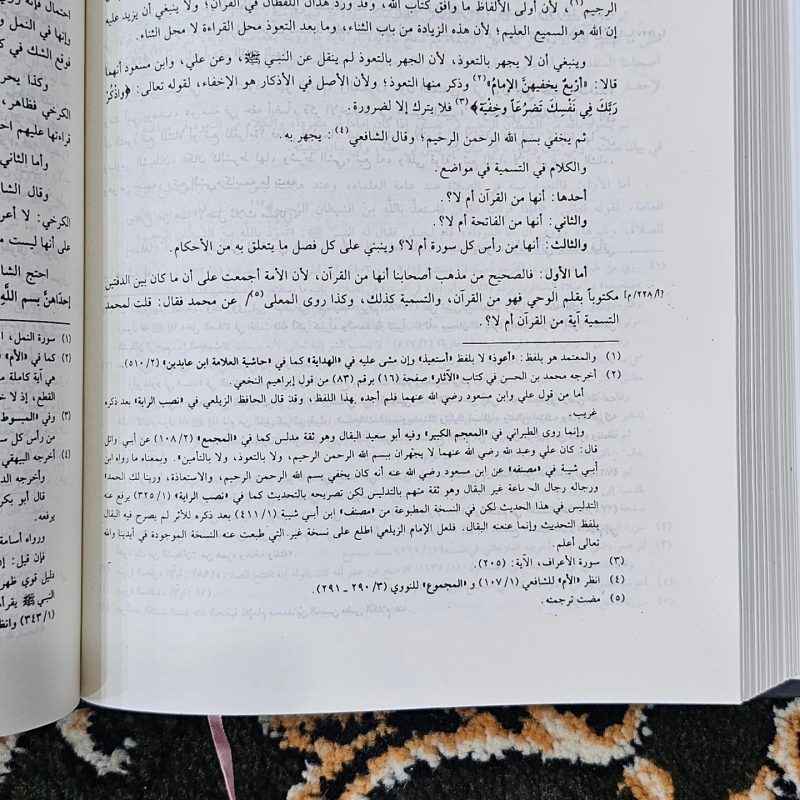 الرجيم(١)، لأن أولى الألفاظ ما وافق كتاب الله، وقد ورد هذان اللفظان في القرآن؛ ولا ينبغي أن يزيد عليه
إن الله هو السميع العليم؛ لأن هذه الزيادة من باب الثناء، وما بعد التعوذ محل القراءة لا محل الثناء.
وينبغي أن لا يجهر بالتعوذ، لأن الجهر بالتعوذ لم ينقل عن النبي ﷺ، وعن علي، وابن مسعود أنهما
قالا: «أَرْبَعٌ يخفيهنَّ الإمامُ»(٢) وذكر منها التعوذ؛ ولأن الأصل في الأذكار هو الإخفاء، لقوله تعالى: ﴿وَاذْكُرْ
رَبَّكَ فِي نَفْسِكَ تَضَرُّعَاً وَخِفْيَة﴾(٣) فلا يترك إلا لضرورة.
ثم يخفي بسم الله الرحمن الرحيم؛ وقال الشافعي(٤): يجهر به.
والكلام في التسمية في مواضع.
أحدها: أنها من القرآن أم لا؟.
والثاني: أنها من الفاتحة أم لا؟.
والثالث: أنها من رأس كل سورة أم لا؟ وينبني على كل فصل ما يتعلق به من الأحكام.
أما الأول: فالصحيح من مذهب أصحابنا أنها من القرآن، لأن الأمة أجمعت على أن ما كان بين الدفتين
[أ/٢٢٨/م] مكتوباً بقلم الوحي فهو من القرآن، والتسمية كذلك، وكذا روى المعلى(٥)/ عن محمد فقال: قلت لمحمد
التسمية آية من القرآن أم لا؟.
(١) والمعتمد هو بلفظ: «أعوذ» لا بلفظ «أستعيذ» وإن مشى عليه في «الهداية» كما في «حاشية العلامة ابن عابدين» (٢/ ٥١٠).
(٢) أخرجه محمد بن الحسن في كتاب «الآثار» صفحة (١٦) برقم (٨٣) من قول إبراهيم النخعي.
أما من قول علي وابن مسعود رضي الله عنهما فلم أجده بهذا اللفظ، وقد قال الحافظ الزيلعي في «نصب الراية» بعد ذكره
غريب.
وإنما روى الطبراني في «المعجم الكبير» وفيه أبو سعيد البقال وهو ثقة مدلس كما في «المجمع» (٢/ ١٠٨) عن أبي وائل
قال: كان علي وعبد الله رضي الله عنهما لا يجهران ببسم الله الرحمن الرحيم، ولا بالتعوذ، ولا بالتأمين». وبمعناه ما رواه ابن
أبي شيبة في «مصنفه» عن ابن مسعود رضي الله عنه أنه كان يخفي بسم الله الرحمن الرحيم، والاستعاذة، وربنا لك الحمد؛
ورجاله رجال الجماعة غير البقال وهو ثقة متهم بالتدليس لكن تصريحه بالتحديث كما في «نصب الراية» (١/ ٣٢٥) يرفع عنه
التدليس في هذا الحديث لكن في النسخة المطبوعة من «مصنف» ابن أبي شيبة (١/ ٤١١) بعد ذكره للأثر لم يصرح فيه البقال
بلفظ التحديث وإنما عنعنه البقال. فلعل الإمام الزيلعي اطلع على نسخة غير التي طبعت عنه النسخة الموجودة في أيدينا والله
تعالى أعلم.
(٣) سورة الأعراف، الآية: (٢٠٥).
(٤) انظر «الأم» للشافعي (١/ ١٠٧) و «المجموع» للنووي (٣/ ٢٩٠ ـ ٢٩١).
(٥) مضت ترجمته.
احتمال فإنه
وإنها في النمل و
فوقع الشك في ك
وكذا يحر
الكرخي فظاهر،
قراءتها عليهم اح
وأما الثاني
وقال الشا
الكرخي: لا أعر
على أنها ليست م
احتج الشا
إحْدَاهنَّ بسم اللَّهِ
(١) سورة النمل، ا
(٢) كما في «الأم»
هي آية كاملة م
القطع، إذ لا خ
(٣) وفي «المبسوط
من رأس كل سو
(٤) أخرجه البيهقي
وأخرجه الد
قال أبو بكر
يرفعه.
ورواه أسامة
فإن قيل: إ
دليل قوي ظهر
النبي ﷺ يقرأ
(١/ ٣٤٣) وانظ